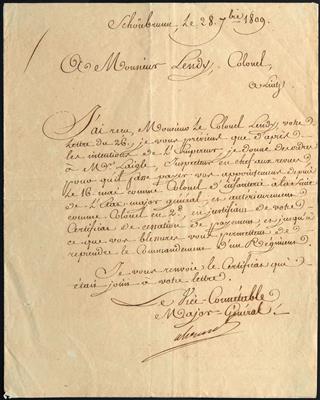 Schönbrunn, Le 28. 7bre 1809.
A Monsieur Lendy, Colonel,
à Lintz
J'ai reçu, Monsieur Le Colonel Lendy, votre
Lettre du 26, je vous préviens que d'après
les intentions de L'Empereur, je donne des ordres
à Mr. Laigle, Inspecteur en chef aux revues
pour qu'il fasse payer vos appointemens depuis
Le 16 mai comme Colonel d'infanterie à la suite
de L'État major général, et antérieurement
comme Colonel en 2e, en justifiant de votre
Certificat de cessation de payement et jusqu'à
ce que vos blessures vous permettent de
reprendre le Commandement d'un Régiment
Je vous renvoie le Certificat qui
était joint à votre lettre.
Le Vice-Connétable
Major-Général